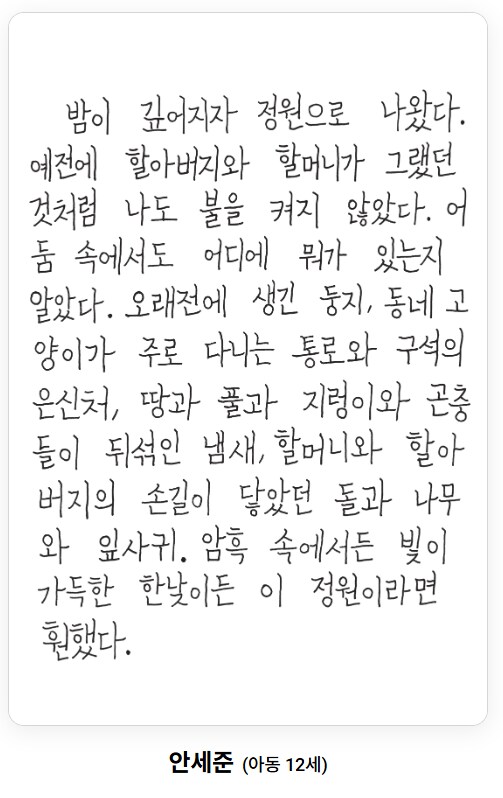 밤이 깊어지자 정원으로 나왔다.
예전에 할아버지와 할머니가 그랬던
것처럼 나도 불을 켜지 않았다. 어
둠 속에서도 어디에 뭐가 있는지
알았다. 오래전에 생긴 둥지, 동네 고
양이가 주로 다니는 통로와 구석의
은신처, 땅과 풀과 지렁이와 곤충
들이 뒤섞인 냄새, 할머니와 할아
버지의 손길이 닿았던 돌과 나무
와 잎사귀. 암흑 속에서든 빛이
가득한 한낮이든 이 정원이라면
훤했다.
안세준 (아동 12세)